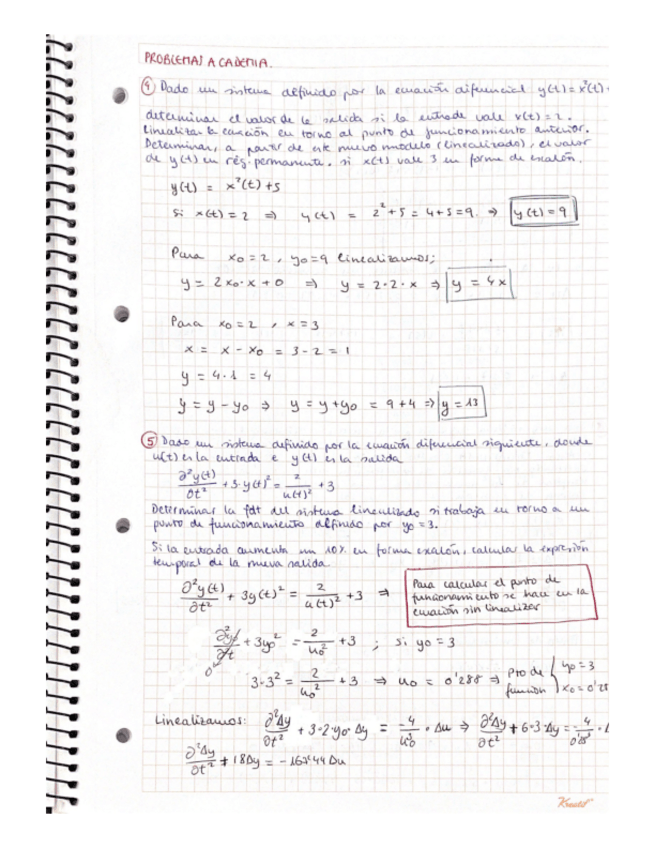 PROBLEMAS ACADEMIA.
4 Dado un sistema definido por la ecuación diferencial y(t) = x²(t) +
determinar el valor de la salida si la entrada vale x(t) = 2.
Linealizar la ecuación en torno al punto de funcionamiento anterior.
Determinar, a partir de este nuevo modelo (linealizado), el valor
de y(t) en rég. permanente, si x(t) vale 3 en forma de escalón.
y(t) = x²(t) + 5
Si x(t) = 2 ⇒ y(t) = 2² + 5 = 4 + 5 = 9 ⇒ y(t) = 9
Para x₀ = 2 , y₀ = 9 linealizamos;
y = 2x₀ · x + 0 ⇒ y = 2 · 2 · x ⇒ y = 4x
Para x₀ = 2 , x = 3
x = x - x₀ = 3 - 2 = 1
y = 4 · 1 = 4
y = y - y₀ ⇒ y = y + y₀ = 9 + 4 ⇒ y = 13
5 Dado un sistema definido por la ecuación diferencial siguiente, donde
u(t) es la entrada e y(t) es la salida
∂²y(t)/∂t² + 3·y(t)² = 2/u(t)² + 3
Determinar la fdt del sistema linealizado si trabaja en torno a un
punto de funcionamiento definido por y₀ = 3.
Si la entrada aumenta un 10% en forma escalón, calcular la expresión
temporal de la nueva salida.
∂²y(t)/∂t² + 3y(t)² = 2/u(t)² + 3 ⇒
Para calcular el punto de
funcionamiento se hace en la
ecuación sin linealizar
∂²y₀/∂²t + 3y₀² = 2/u₀² + 3 ; Si y₀ = 3
0
3·3² = 2/u₀² + 3 ⇒ u₀ = 0'288 ⇒ Pto de función { y₀ = 3 x₀ = 0'28
Linealizamos: ∂²Δy/∂t² + 3·2·y₀·Δy = -4/u₀³ · Δu ⇒ ∂²Δy/∂t² + 6·3·Δy = -4/
∂²Δy/∂t² + 18Δy = -162'44 Δu